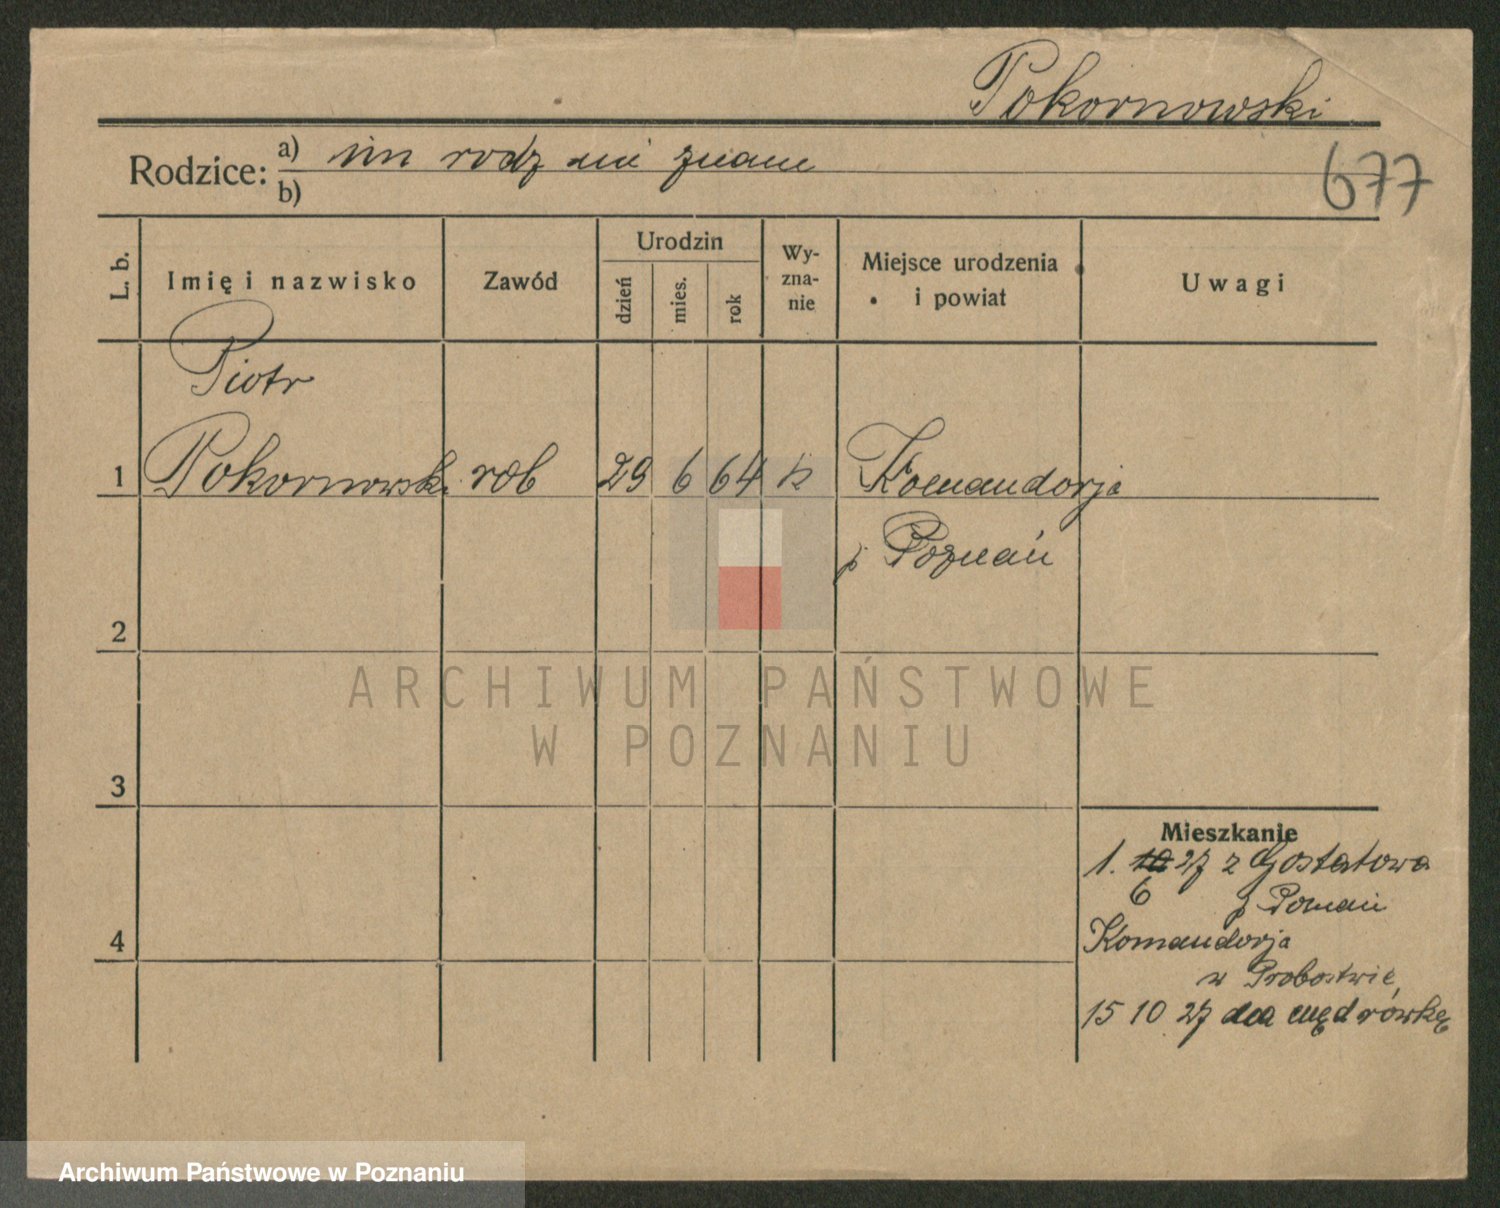 Pokornowski
Rodzice: a) im rodz nie znane
b)
677
L. b.
Imię i nazwisko
Zawód
Urodzin
dzień
mies.
rok
Wy-
zna-
nie
Miejsce urodzenia
i powiat
Uwagi
Piotr
1 Pokornowski rob 29 6 64 k Komandorja
p Poznań
2
3
4
Mieszkanie
1. 10 27 z Gostatowa
6 p Poznań
Komandorja
w Probostwie
15 10 27 na wędrówkę
ARCHIWUM PAŃSTWOWE
W POZNANIU
Archiwum Państwowe w Poznaniu